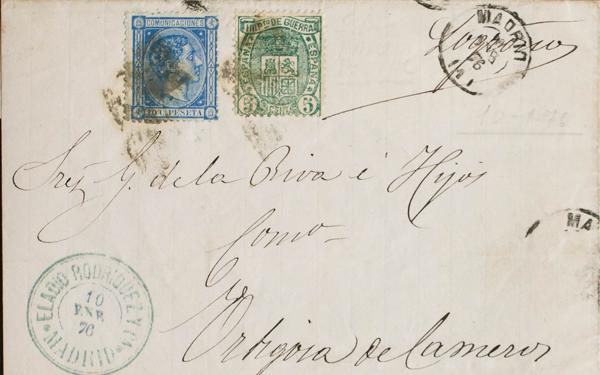 COMUNICACIONES
10 Cs PESETA
IMPTO DE GUERRA
ESPAÑA
ESPAÑA
5 CENT 5
MADRID
76
(1)
Logroño
10-1-76
Sres G. de la Riva é Hijos
Como
Ortigosa de Cameros
MA
ELADIO RODRIGUEZ Y CA
10
ENE
76
MADRID